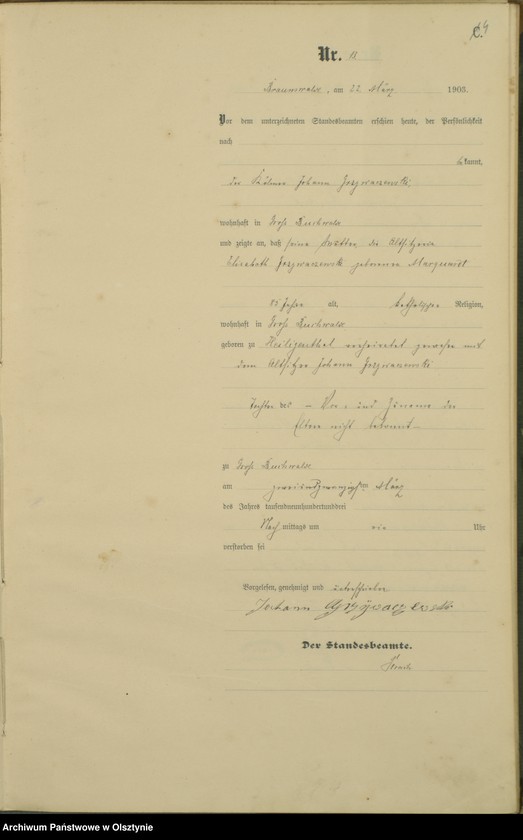 Nr. 12
Braunswalde, am 22 März 1903.
Vor dem unterzeichneten Standesbeamten erschien heute, der Persönlichkeit
nach
bekannt,
der Käthner Johann
wohnhaft in Groß Buchwalde
und zeigte an, daß seine Mutter die Altsitzerin
Elisabeth geborene Marquardt
Jahre alt, katholischer Religion,
wohnhaft in Groß Buchwalde
geboren zu Heiligenthal verheiratet gewesen mit
dem Altsitzer Johann
Tochter des – Vor- und Zuname der
Eltern nicht bekannt –
zu Groß Buchwalde
am zweiundzwanzigsten März
des Jahres tausendneunhundertunddrei
Nachmittags um ein Uhr
verstorben sei
Vorgelesen, genehmigt und unterschrieben
Johann
Der Standesbeamte.
Archiwum Państwowe w Olsztynie